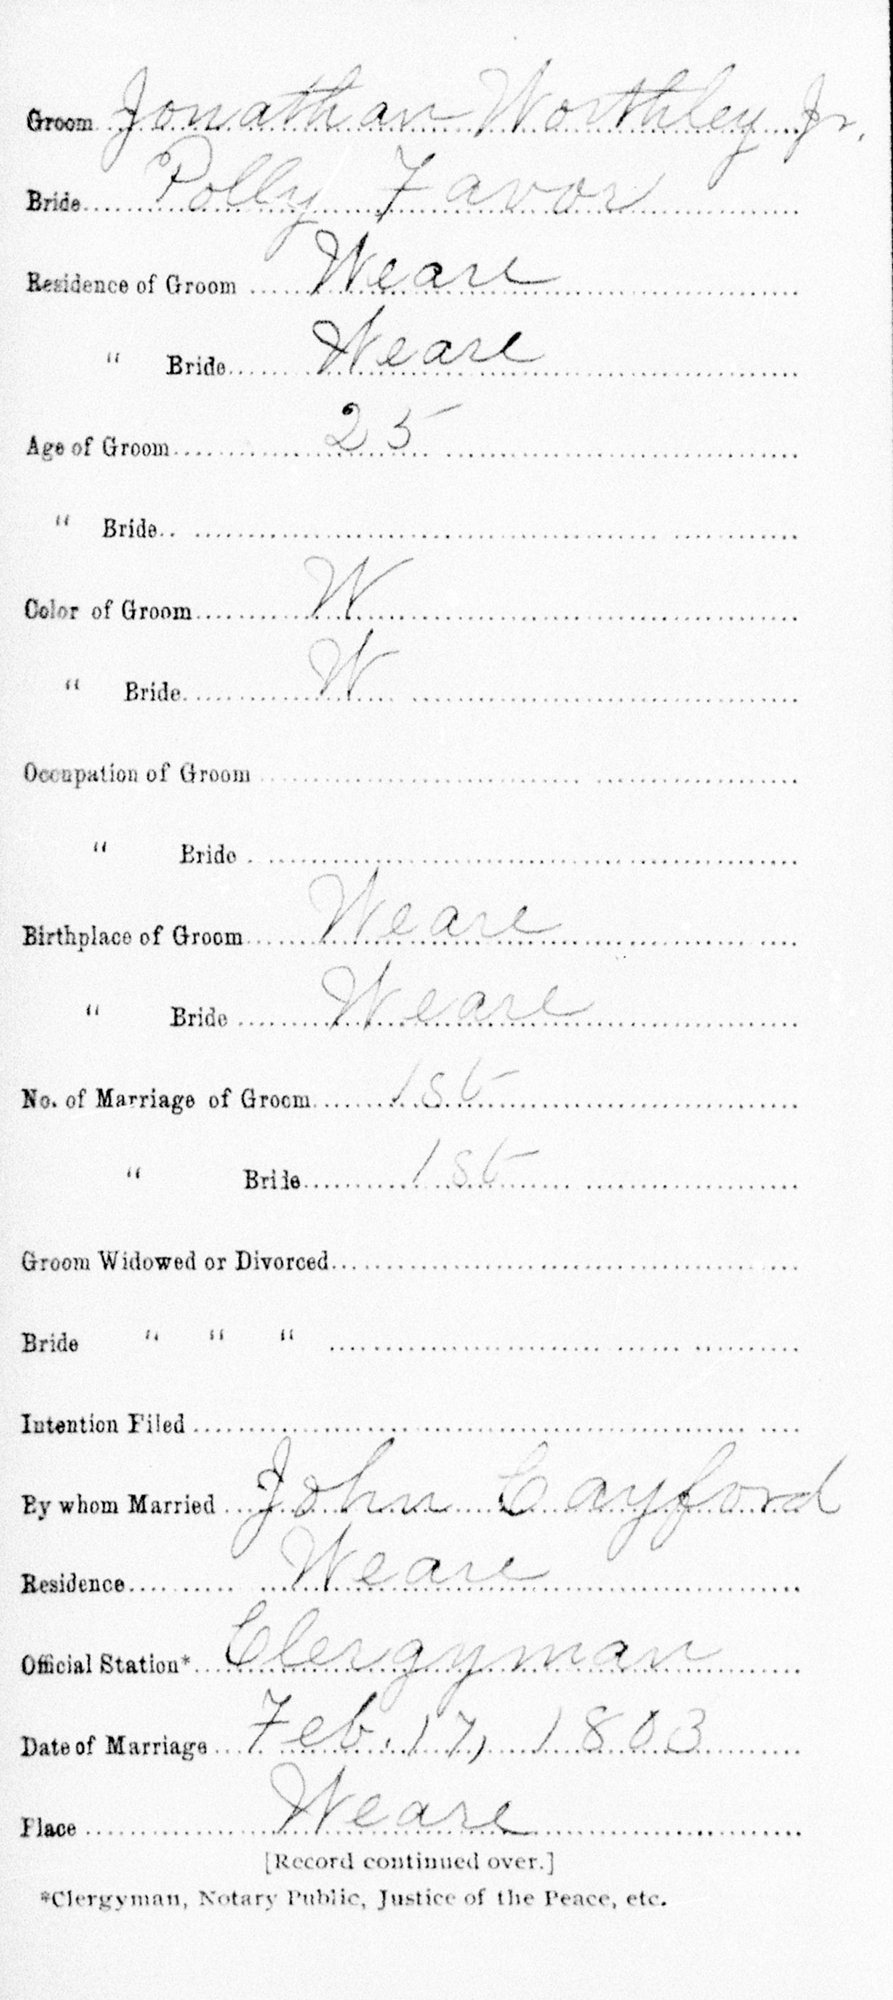 Groom Jonathan Worthley Jr.
Bride Polly Favor
Residence of Groom Weare
" Bride Weare
Age of Groom 25
" Bride
Color of Groom W
" Bride W
Occupation of Groom
" Bride
Birthplace of Groom Weare
" Bride Weare
No. of Marriage of Groom 1st
" Bride 1st
Groom Widowed or Divorced
Bride " " "
Intention Filed
By whom Married John Cayford
Residence Weare
Official Station* Clergyman
Date of Marriage Feb. 17, 1803
Place Weare
[Record continued over.]
*Clergyman, Notary Public, Justice of the Peace, etc.